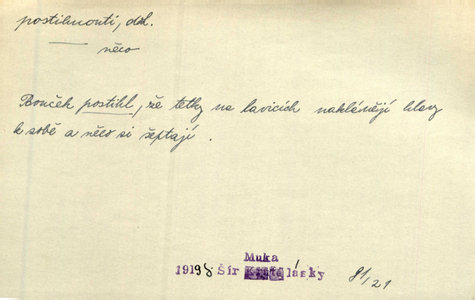 postihnouti, dok.
něco
Bouček postihl, že tetky na lavicích naklánějí hlavy
k sobě a něco si šeptají.
Muka
1919 8 Šír lásky
81/21